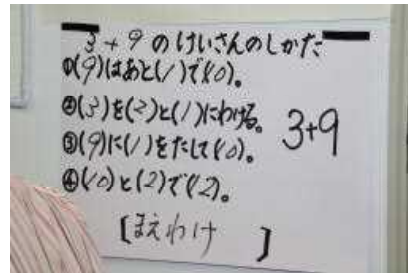 3+9のけいさんのしかた
①(9)はあと(1)で(10)。
②(3)を(2)と(1)にわける。
③(9)に(1)をたして(10)。
④(10)と(2)で(12)。
3+9
[まえわけ]